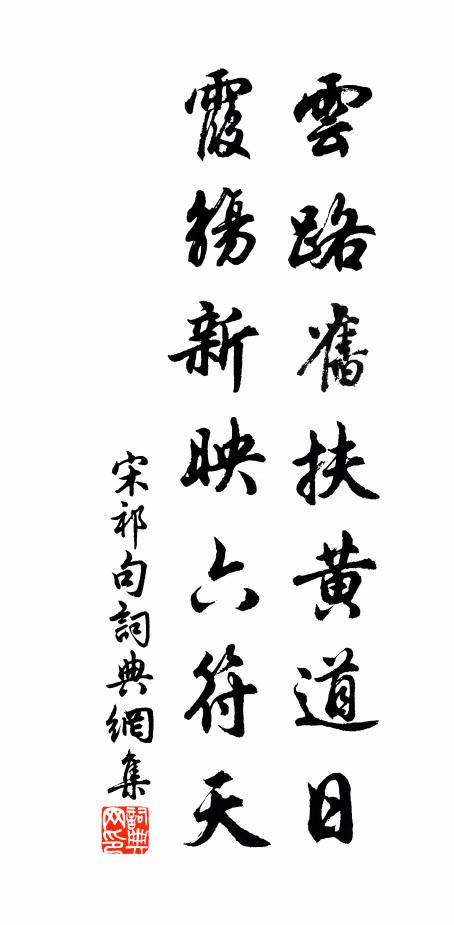 雲路舊扶黃道日
霞觴新映六符天
宋祁句詞典網集
詞典网印